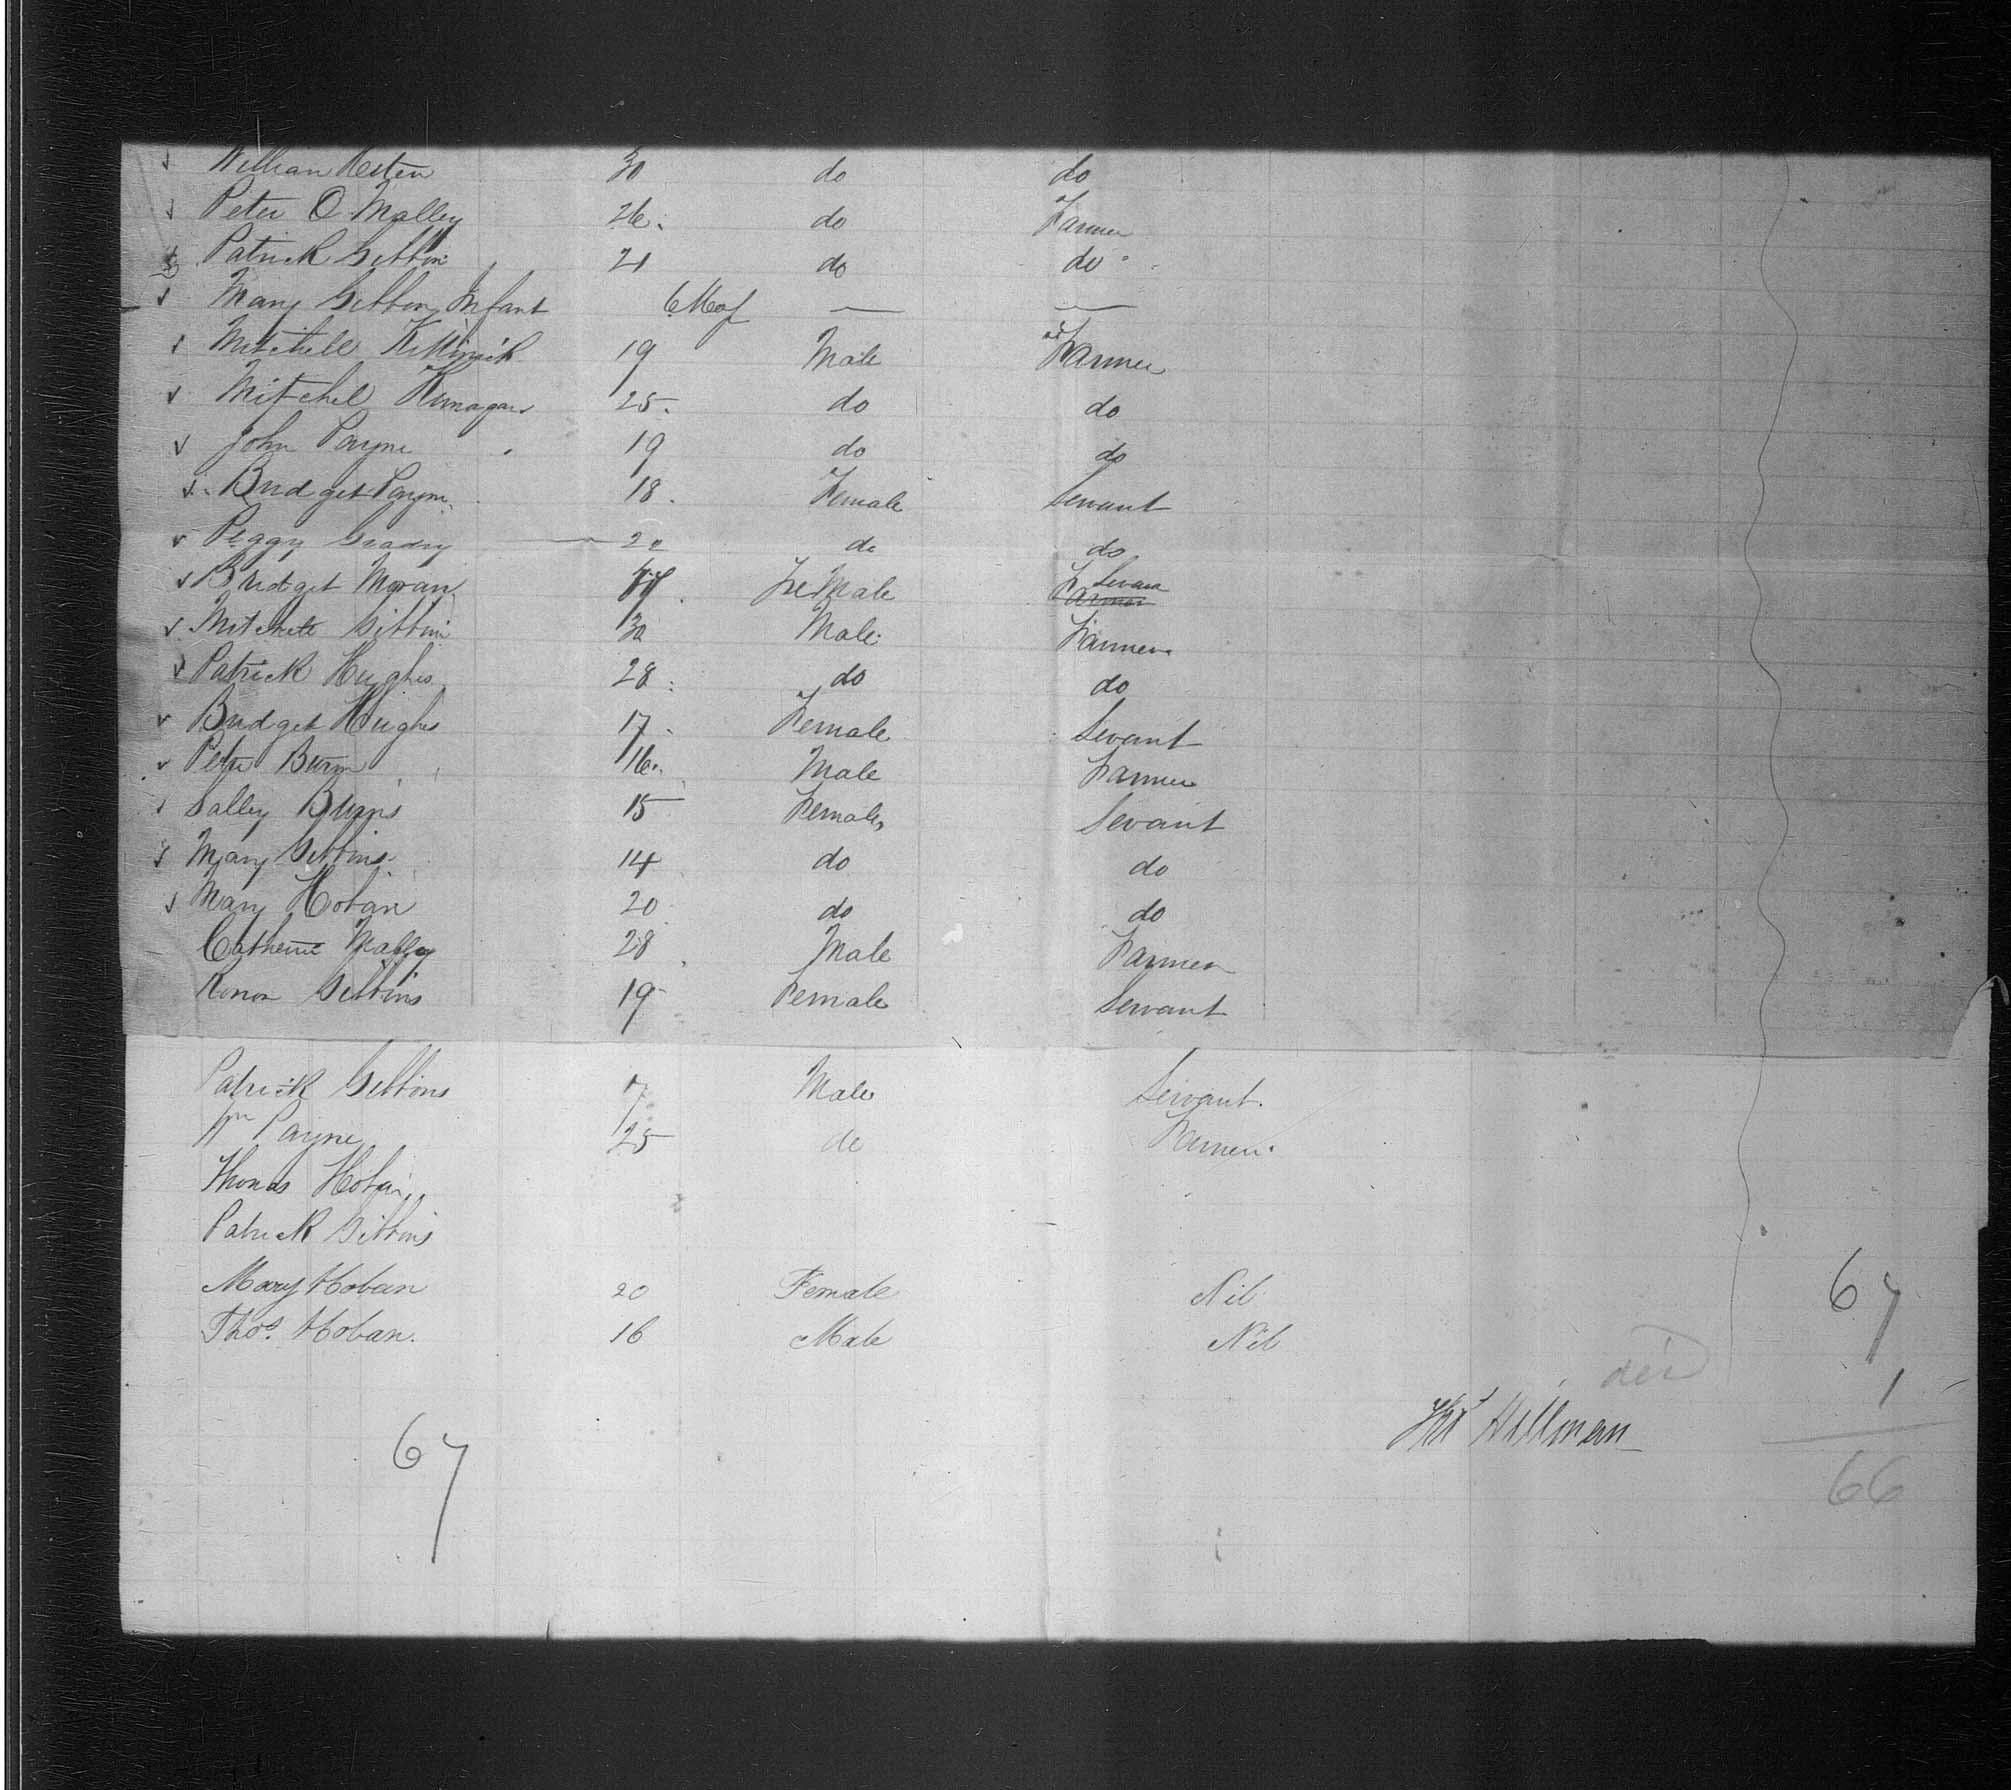 William 30 do do
Peter O Malley 26 do Farmer
Patrick Gibbon 21 do do
Mary Gibbon Infant 6 Mo —
Mitchell 19 Male Farmer
Mitchel 25 do do
John Payne 19 do do
Bridget Payne 18 Female Servant
Peggy Grady 22 do do
Bridget Moran Fe Male Farmer Servant
Mitchell Gibbin 30 Male Farmer
Patrick Hughes 28 do do
Bridget Hughes 17 Female Sevant
Peter Burn 16 Male Farmer
Salley Burns 15 Female Sevant
Mary Gibbins 14 do do
Mary Hoban 20 do do
Catherine Malley 28 Male Farmer
Honor Gibbins 19 Female Servant
Patrick Gibbins 17 Male Servant
Wm Payne 25 do Farmer
Thomas Hoban
Patrick Gibbins
Mary Hoban 20 Female Nil
Thos. Hoban. 16 Male Nil
67
died 1
Hillman
66
67